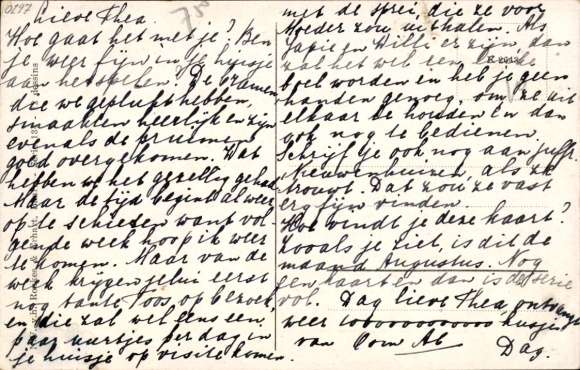 0297
75
Lieve Thea.
Hoe gaat het met je? Ben
je weer fijn in je huisje
aan het spelen? De bramen
die we geplukt hebben,
smaakten heerlijk en zijn
evenals de pruimen
goed overgekomen. Wat
hebben we het gezellig gehad.
Maar de tijd begint alweer
op te schieten want vol-
gende week hoop ik weer
te komen. Maar van de
week krijgen jelui eerst
nog tante Toos, op bezoek,
en die zal wel eens een
paar uurtjes per dag in
je huisje op visite komen.
met de sprei, die ze voor
Moeder zou uithalen. Als
en Willi er zijn, dan
zal het wel een
boel worden en heb je geen
handen genoeg, om ze uit
elkaar te houden en dan
ook nog te bedienen.
Schrijf je ook nog aan juffr.
Nieuwenhuizen, als ze
trouwt. Dat zou ze vast
erg fijn vinden.
Hoe vindt je deze kaart?
Zooals je ziet, is dit de
maand Augustus. Nog
een kaart en dan is de serie
vol. Dag lieve Thea, ontvang
weer 10000000000000 kusjes
van Oom Ab Dag.
K 2613